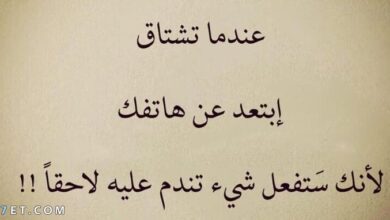 عندما تشتاق
إبتعد عن هاتفك
لأنك سَتفعل شيء تندم عليه لاحقاً !!
7ET.COM